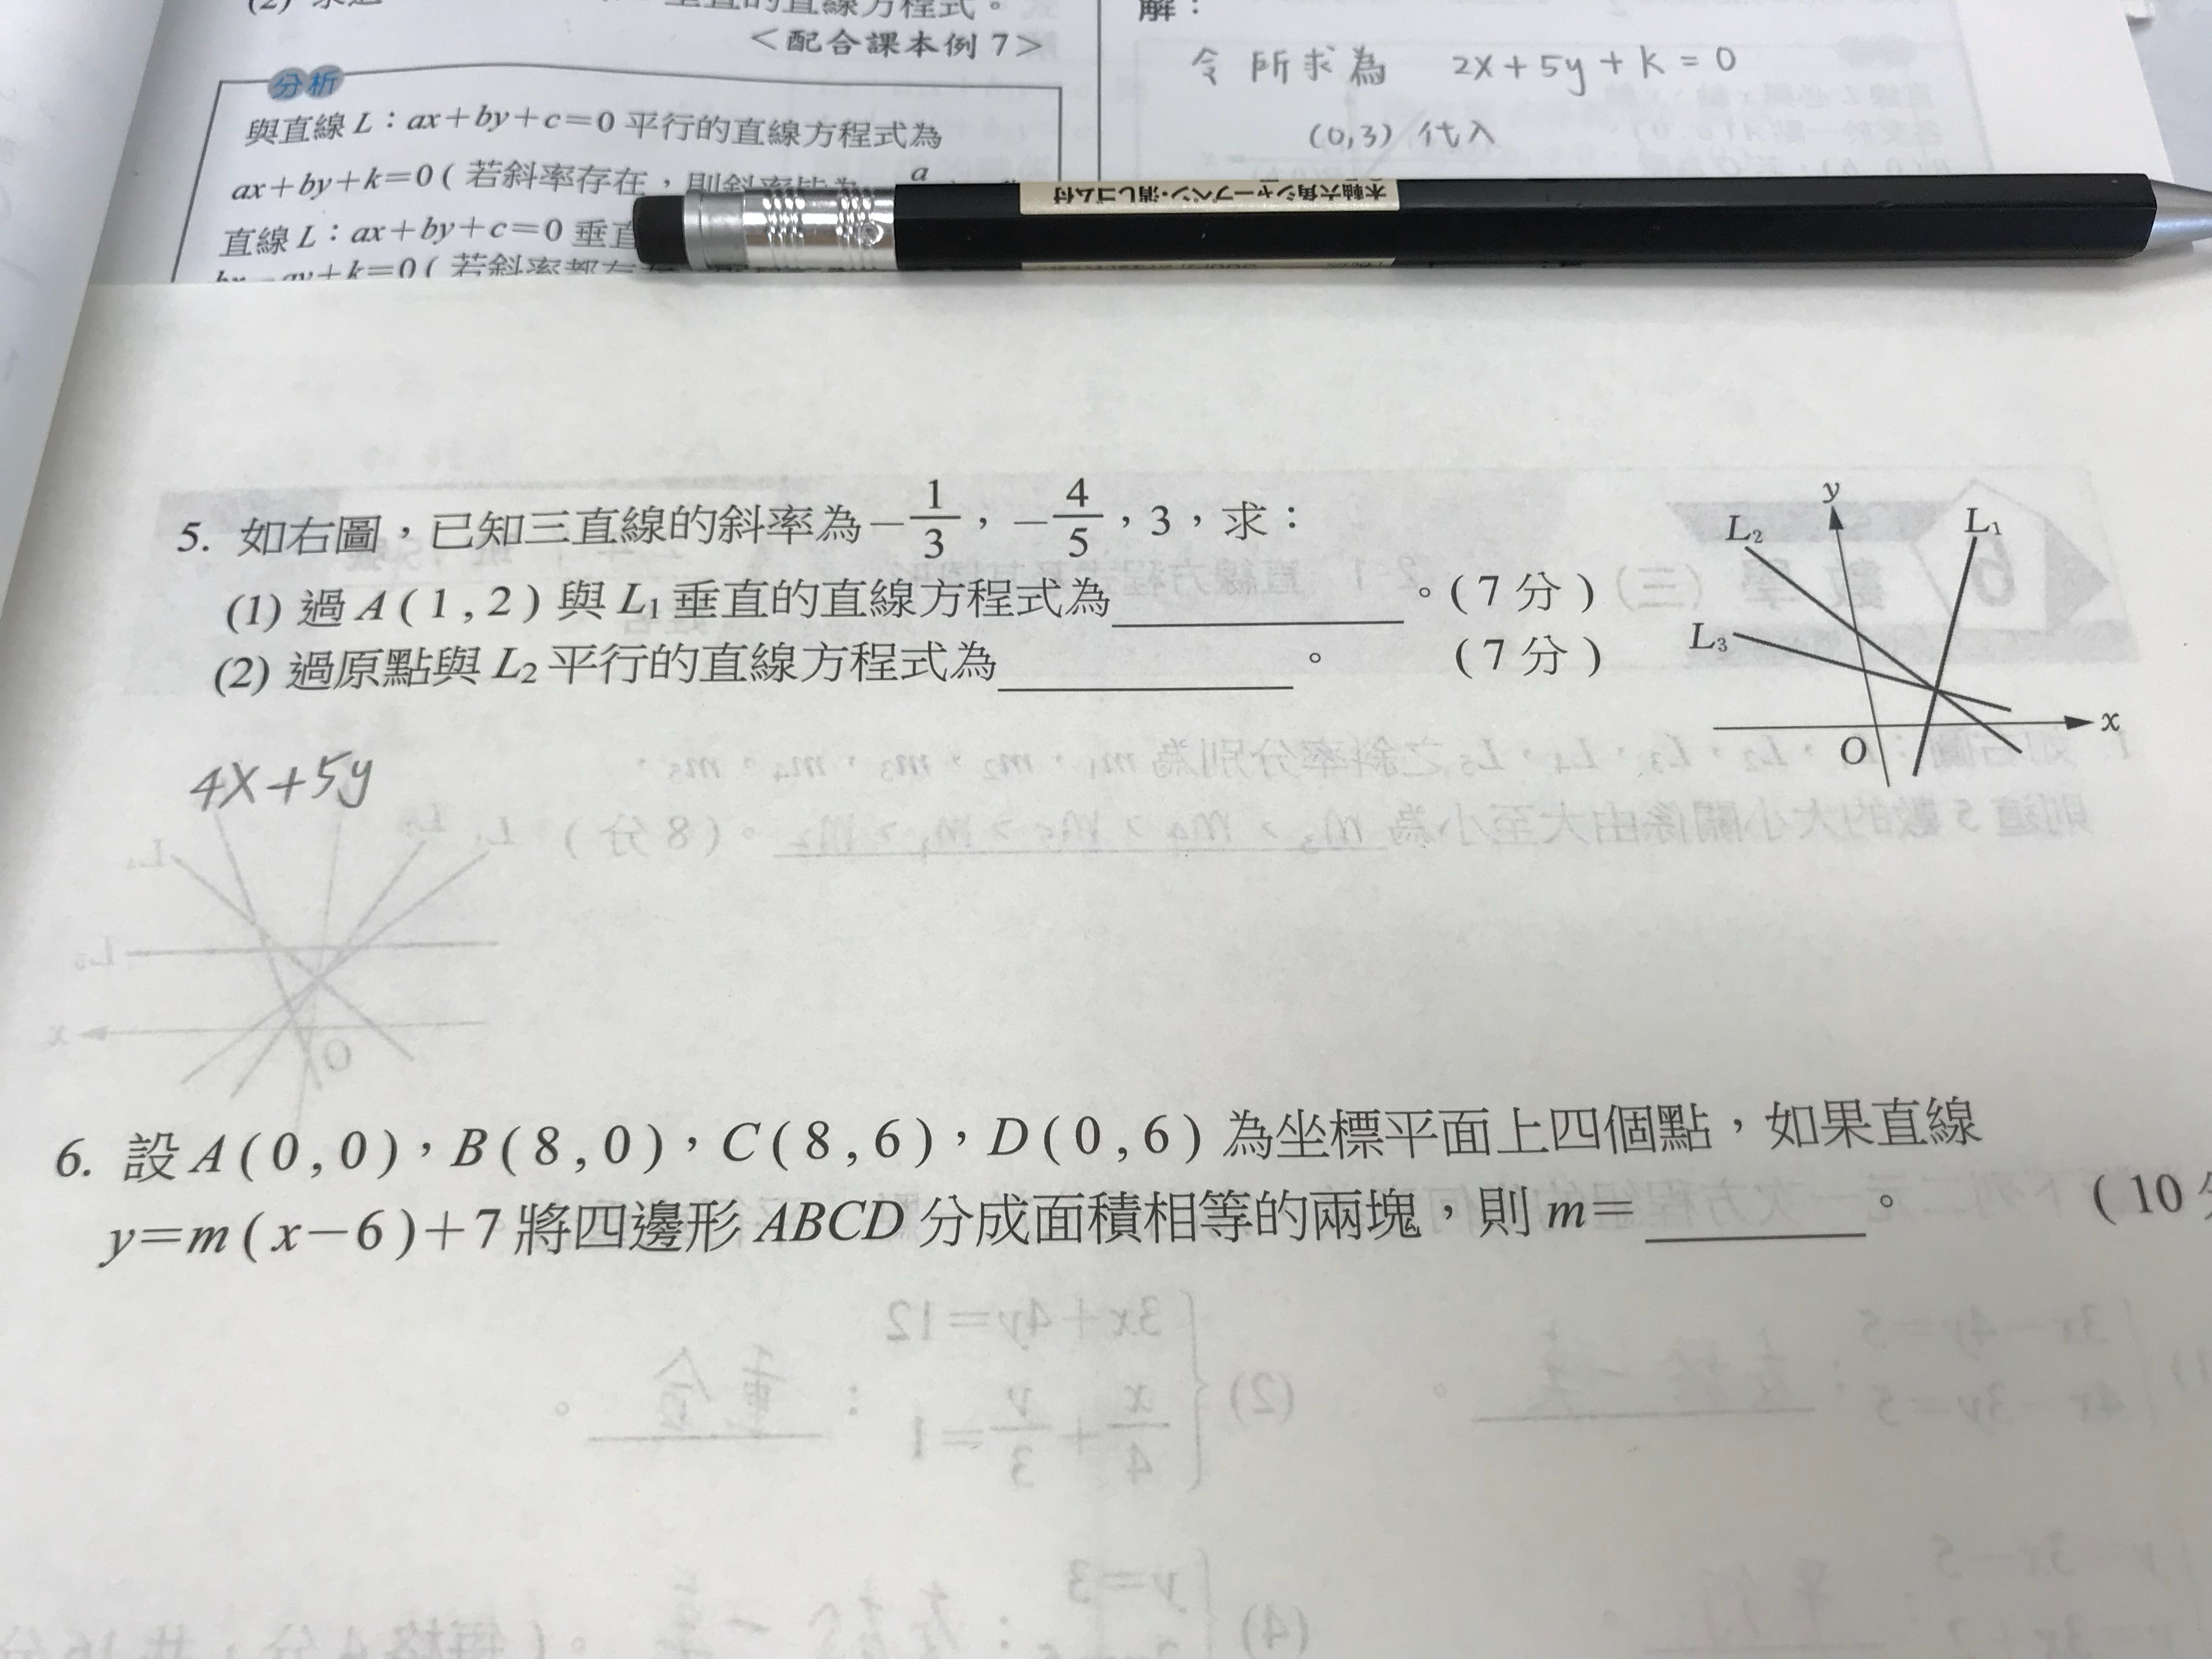 垂直的直線方程式。
<配合課本例7>
分析
與直線L：ax+by+c=0平行的直線方程式為
ax+by+k=0(若斜率存在，則斜率皆為
直線L：ax+by+c=0垂直
bx-ay+k=0(若斜率都存在
解：
令 所求為 2x+5y+k=0
(0,3) 代入
木軸六角シャープペン・消しゴム付
5. 如右圖，已知三直線的斜率為-1/3，-4/5，3，求：
(1) 過A(1,2)與L₁垂直的直線方程式為________。(7分)
(2) 過原點與L₂平行的直線方程式為________。(7分)
y
L₂
L₁
L₃
x
O
4x+5y
6. 設A(0,0)，B(8,0)，C(8,6)，D(0,6)為坐標平面上四個點，如果直線
y=m(x-6)+7將四邊形ABCD分成面積相等的兩塊，則m=________。(10